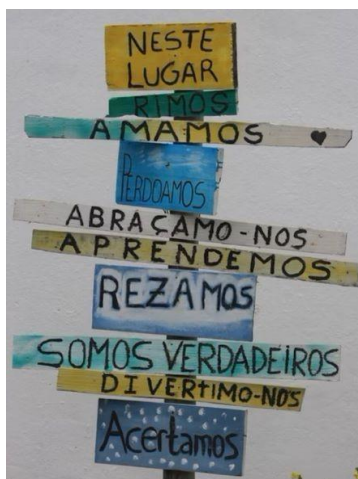 NESTE
LUGAR
RIMOS
AMAMOS
PERDOAMOS
ABRAÇAMO-NOS
APRENDEMOS
REZAMOS
SOMOS VERDADEIROS
DIVERtIMO-NOS
Acertamos